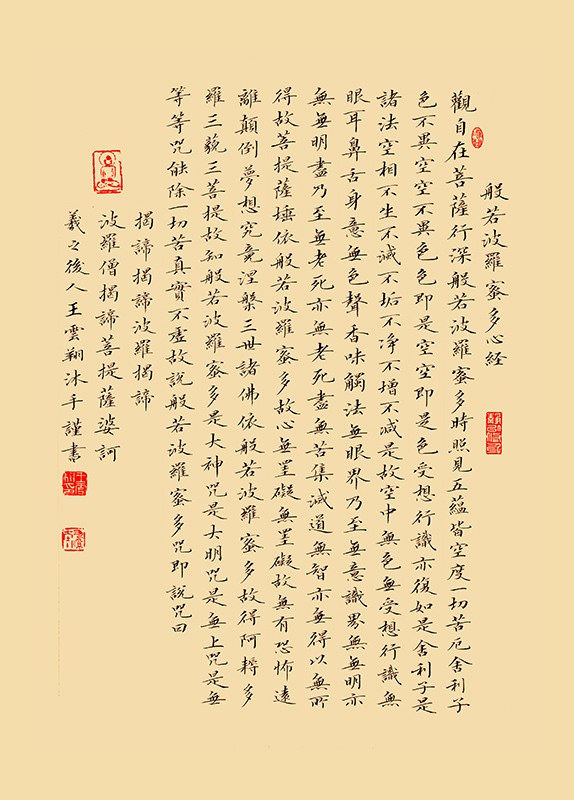 般若波羅蜜多心経
觀自在菩薩行深般若波羅蜜多時照見五蘊皆空度一切苦厄舍利子
色不異空空不異色色即是空空即是色受想行識亦復如是舍利子是
諸法空相不生不滅不垢不净不增不减是故空中無色無受想行識無
眼耳鼻舌身意無色聲香味觸法無眼界乃至無意識界無無明亦
無無明盡乃至無老死亦無老死盡無苦集滅道無智亦無得以無所
得故菩提薩埵依般若波羅蜜多故心無罣礙無罣礙故無有恐怖遠
離顛倒夢想究竟涅槃三世諸佛依般若波羅蜜多故得阿耨多
羅三藐三菩提故知般若波羅蜜多是大神咒是大明咒是無上咒是無
等等咒能除一切苦真實不虛故説般若波羅蜜多咒即説咒曰
揭諦揭諦波羅揭諦
波羅僧揭諦菩提薩婆訶
羲之後人王雲翔沐手謹書